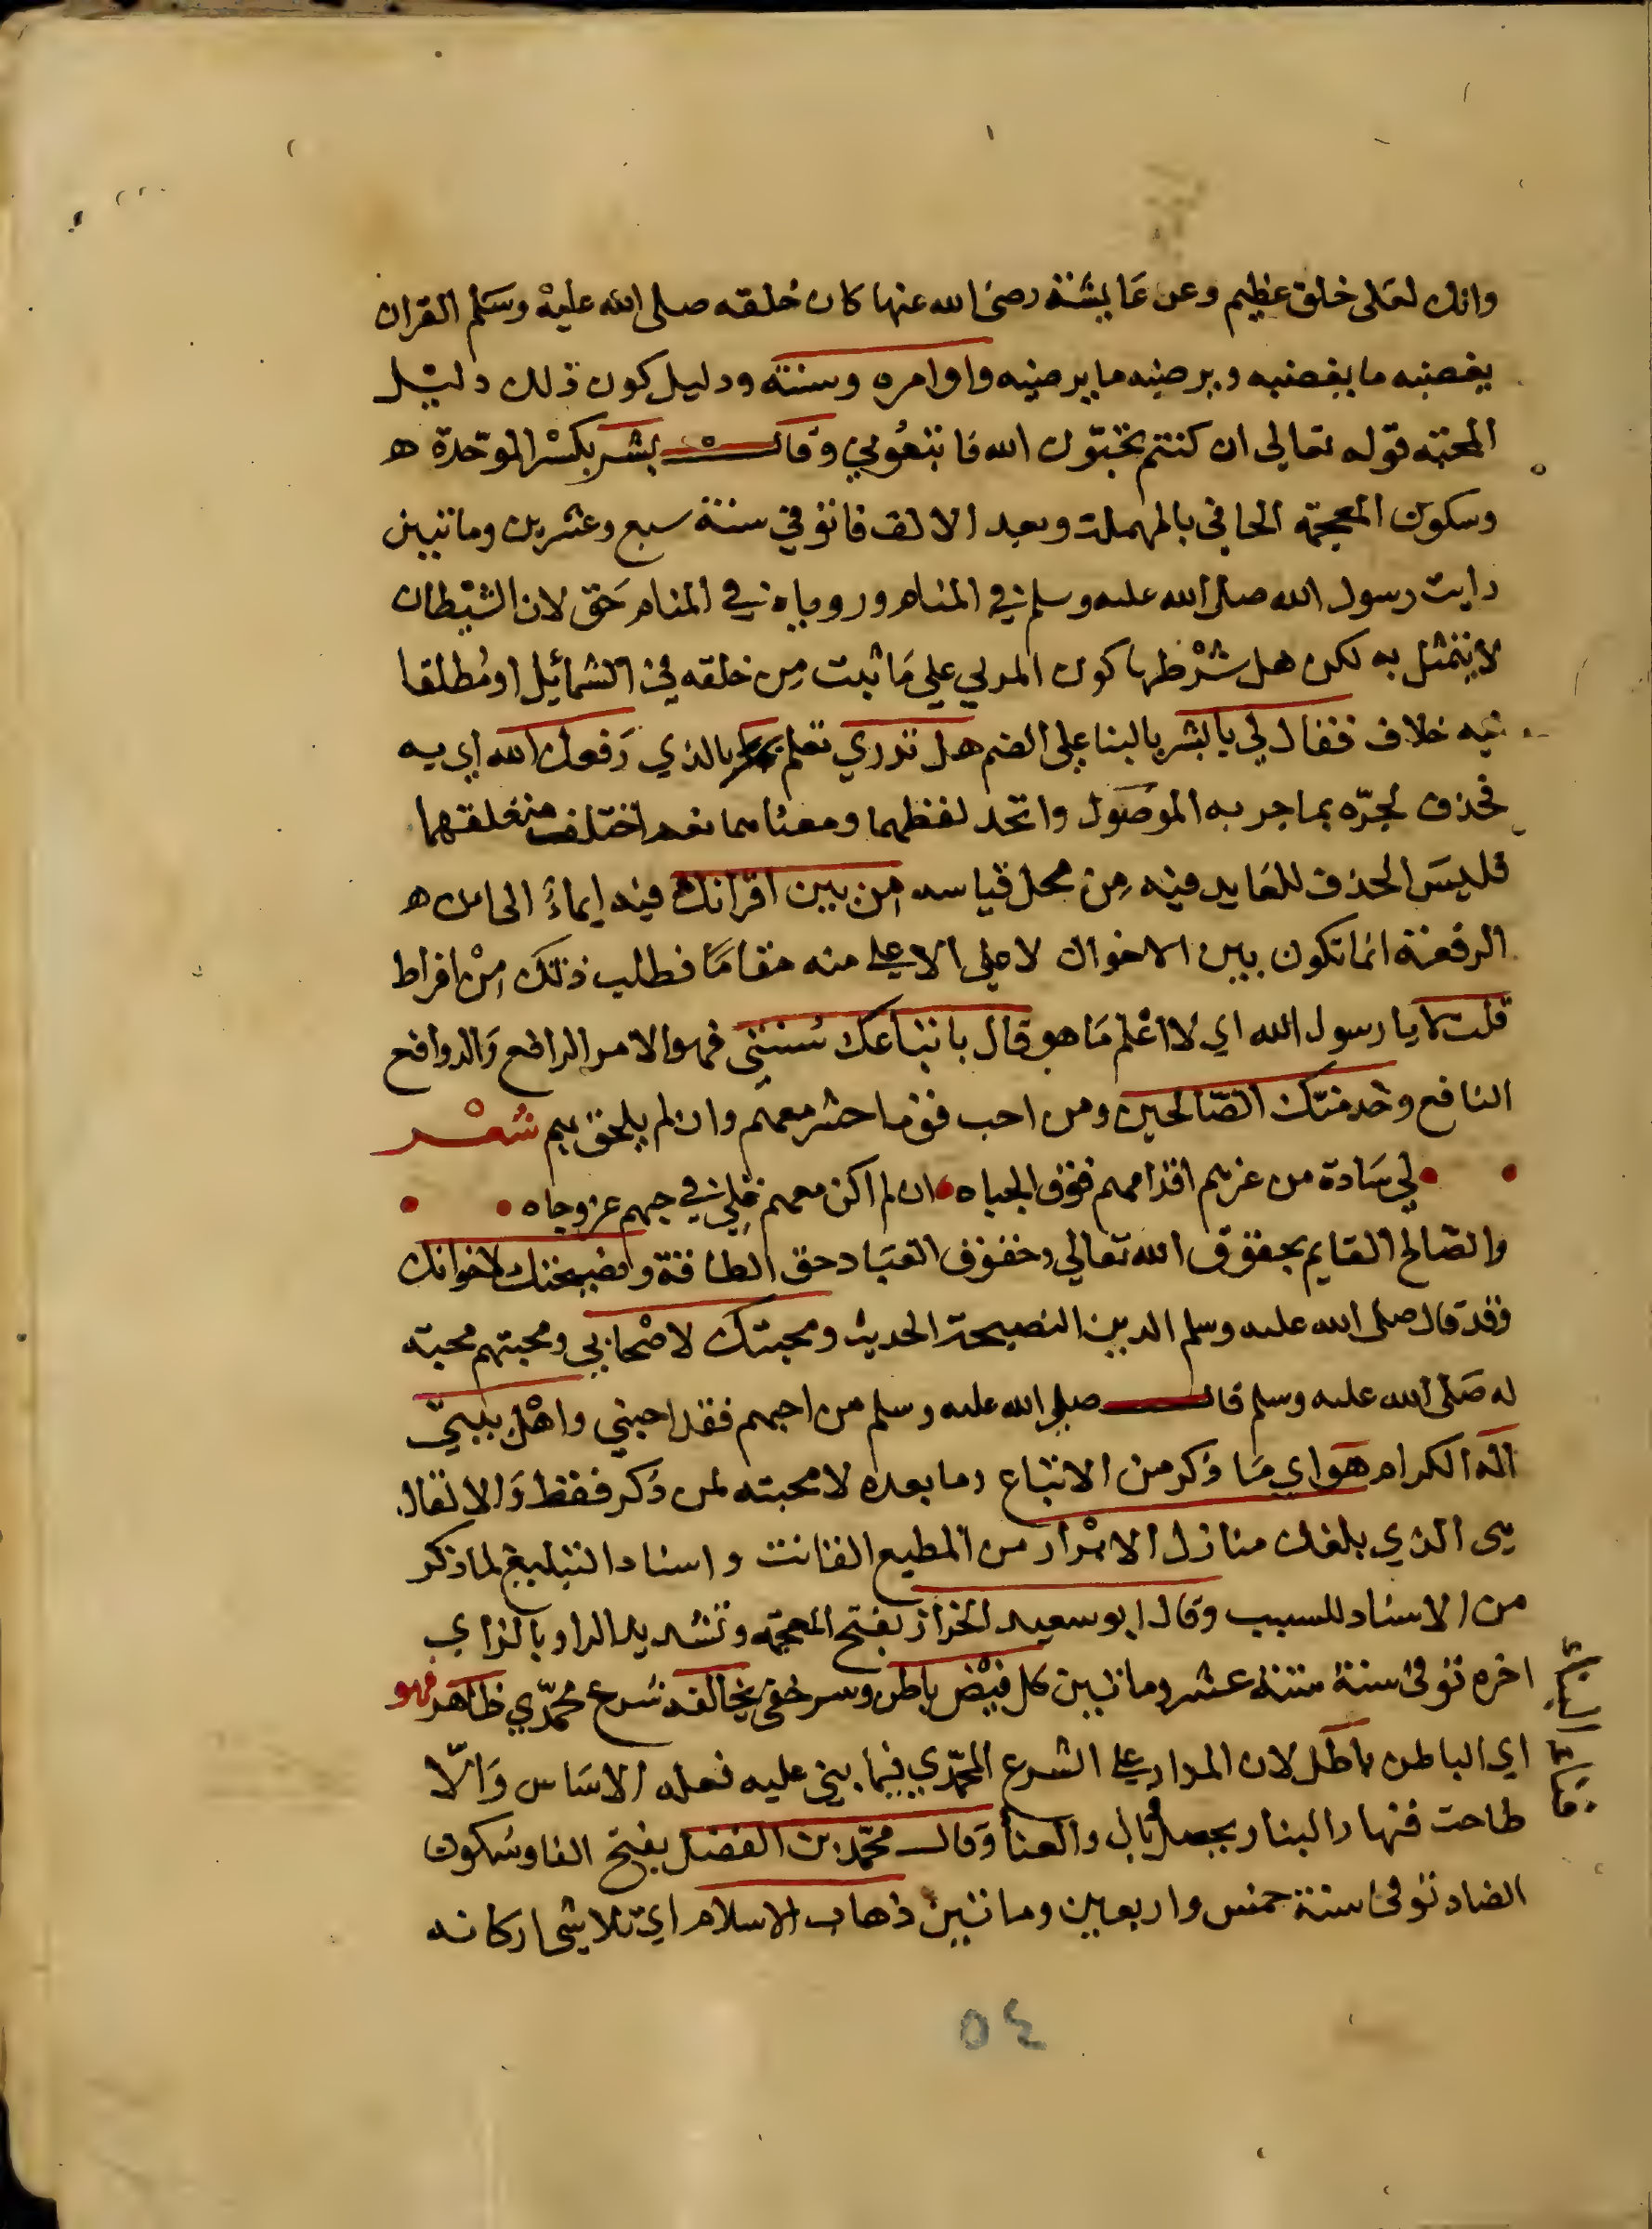 وانك لعلى خلق عظيم وعن عايشة رضي الله عنها كان خلقه صلى الله عليه وسلم القران
يغضبه ما يغضبه ويرضيه ما يرضيه واوامره وسنته ودليل كون ذلك دليل
المحبة قوله تعالى ان كنتم تحبون الله فاتبعوني وقال بشر بكسر الموحدة ه
وسكون المعجمة الحافي بالمهملة وبعد الالف فا توفي سنة سبع وعشرين وماتيين
رايت رسول الله صلى الله عليه وسلم في المنام ورويا ه في المنام حق لان الشيطان
لا يتمثل به لكن هل شرطها كون المرئي على ما ثبت من خلقه في الشمائل او مطلقا
فيه خلاف فقال لي يا بشر بالبنا على الضم هل تدري تعلم بالذي رفعك الله اي به
فحذف لجره بما جر به الموصول واتحد لفظهما ومعناهما نعم اختلف متعلقهما
فليس الحذف للعايد فيه من محل قياسه من بين اقرانك فيه ايماء الى ان ه
الرفعة انما تكون بين الاخوان لا على الاعلى منه مقاما فطلب ذلك من افراط
قلت لا يا رسول الله اي لا اعلم ما هو قال باتباعك سنتي فهو الامر الرافع والدوا فع
النافع وخدمتك الصالحين ومن احب قوما حشر معهم وان لم يلحق بهم شعر
لي سادة من عزهم اقدامهم فوق الجباه ان لم اكن معهم فلي في حبهم عز وجاه
والصالح القايم بحقوق الله تعالى وحقوق العباد حق الطاقة ونصيحتك لاخوانك
فقد قال صلى الله عليه وسلم الدين النصيحة الحديث ومحبتك لاصحابي ومحبتهم محبة
له صلى الله عليه وسلم قال صلى الله عليه وسلم من احبهم فقد احبني واهل بيتي
اله الكرام هو اي ما ذكر من الاتباع وما بعده لا محبته لمن ذكر فقط والا لقال
هي الذي بلغك منازل الابرار من المطيع القانت واسناد التبليغ لما ذكر
من الاسناد للسبب وقال ابو سعيد الخراز بفتح المعجمة وتشديد الرا وبالزاي
اخره توفي سنة ستة عشر وماتيين كل فيض باطن وسر خفي يخالفه شرع محمدي ظاهر فهو
اي الباطن باطل لان المدار على الشرع المحمدي فيما بني عليه فعله الاساس والا
طاحت فنهار البنا ويحصل بال والعنا وقال محمد بن الفضل بفتح الفا وسكون
الضاد توفي سنة خمس واربعين وماتيين ذهاب الاسلام اي تلاشي اركانه
٥٤